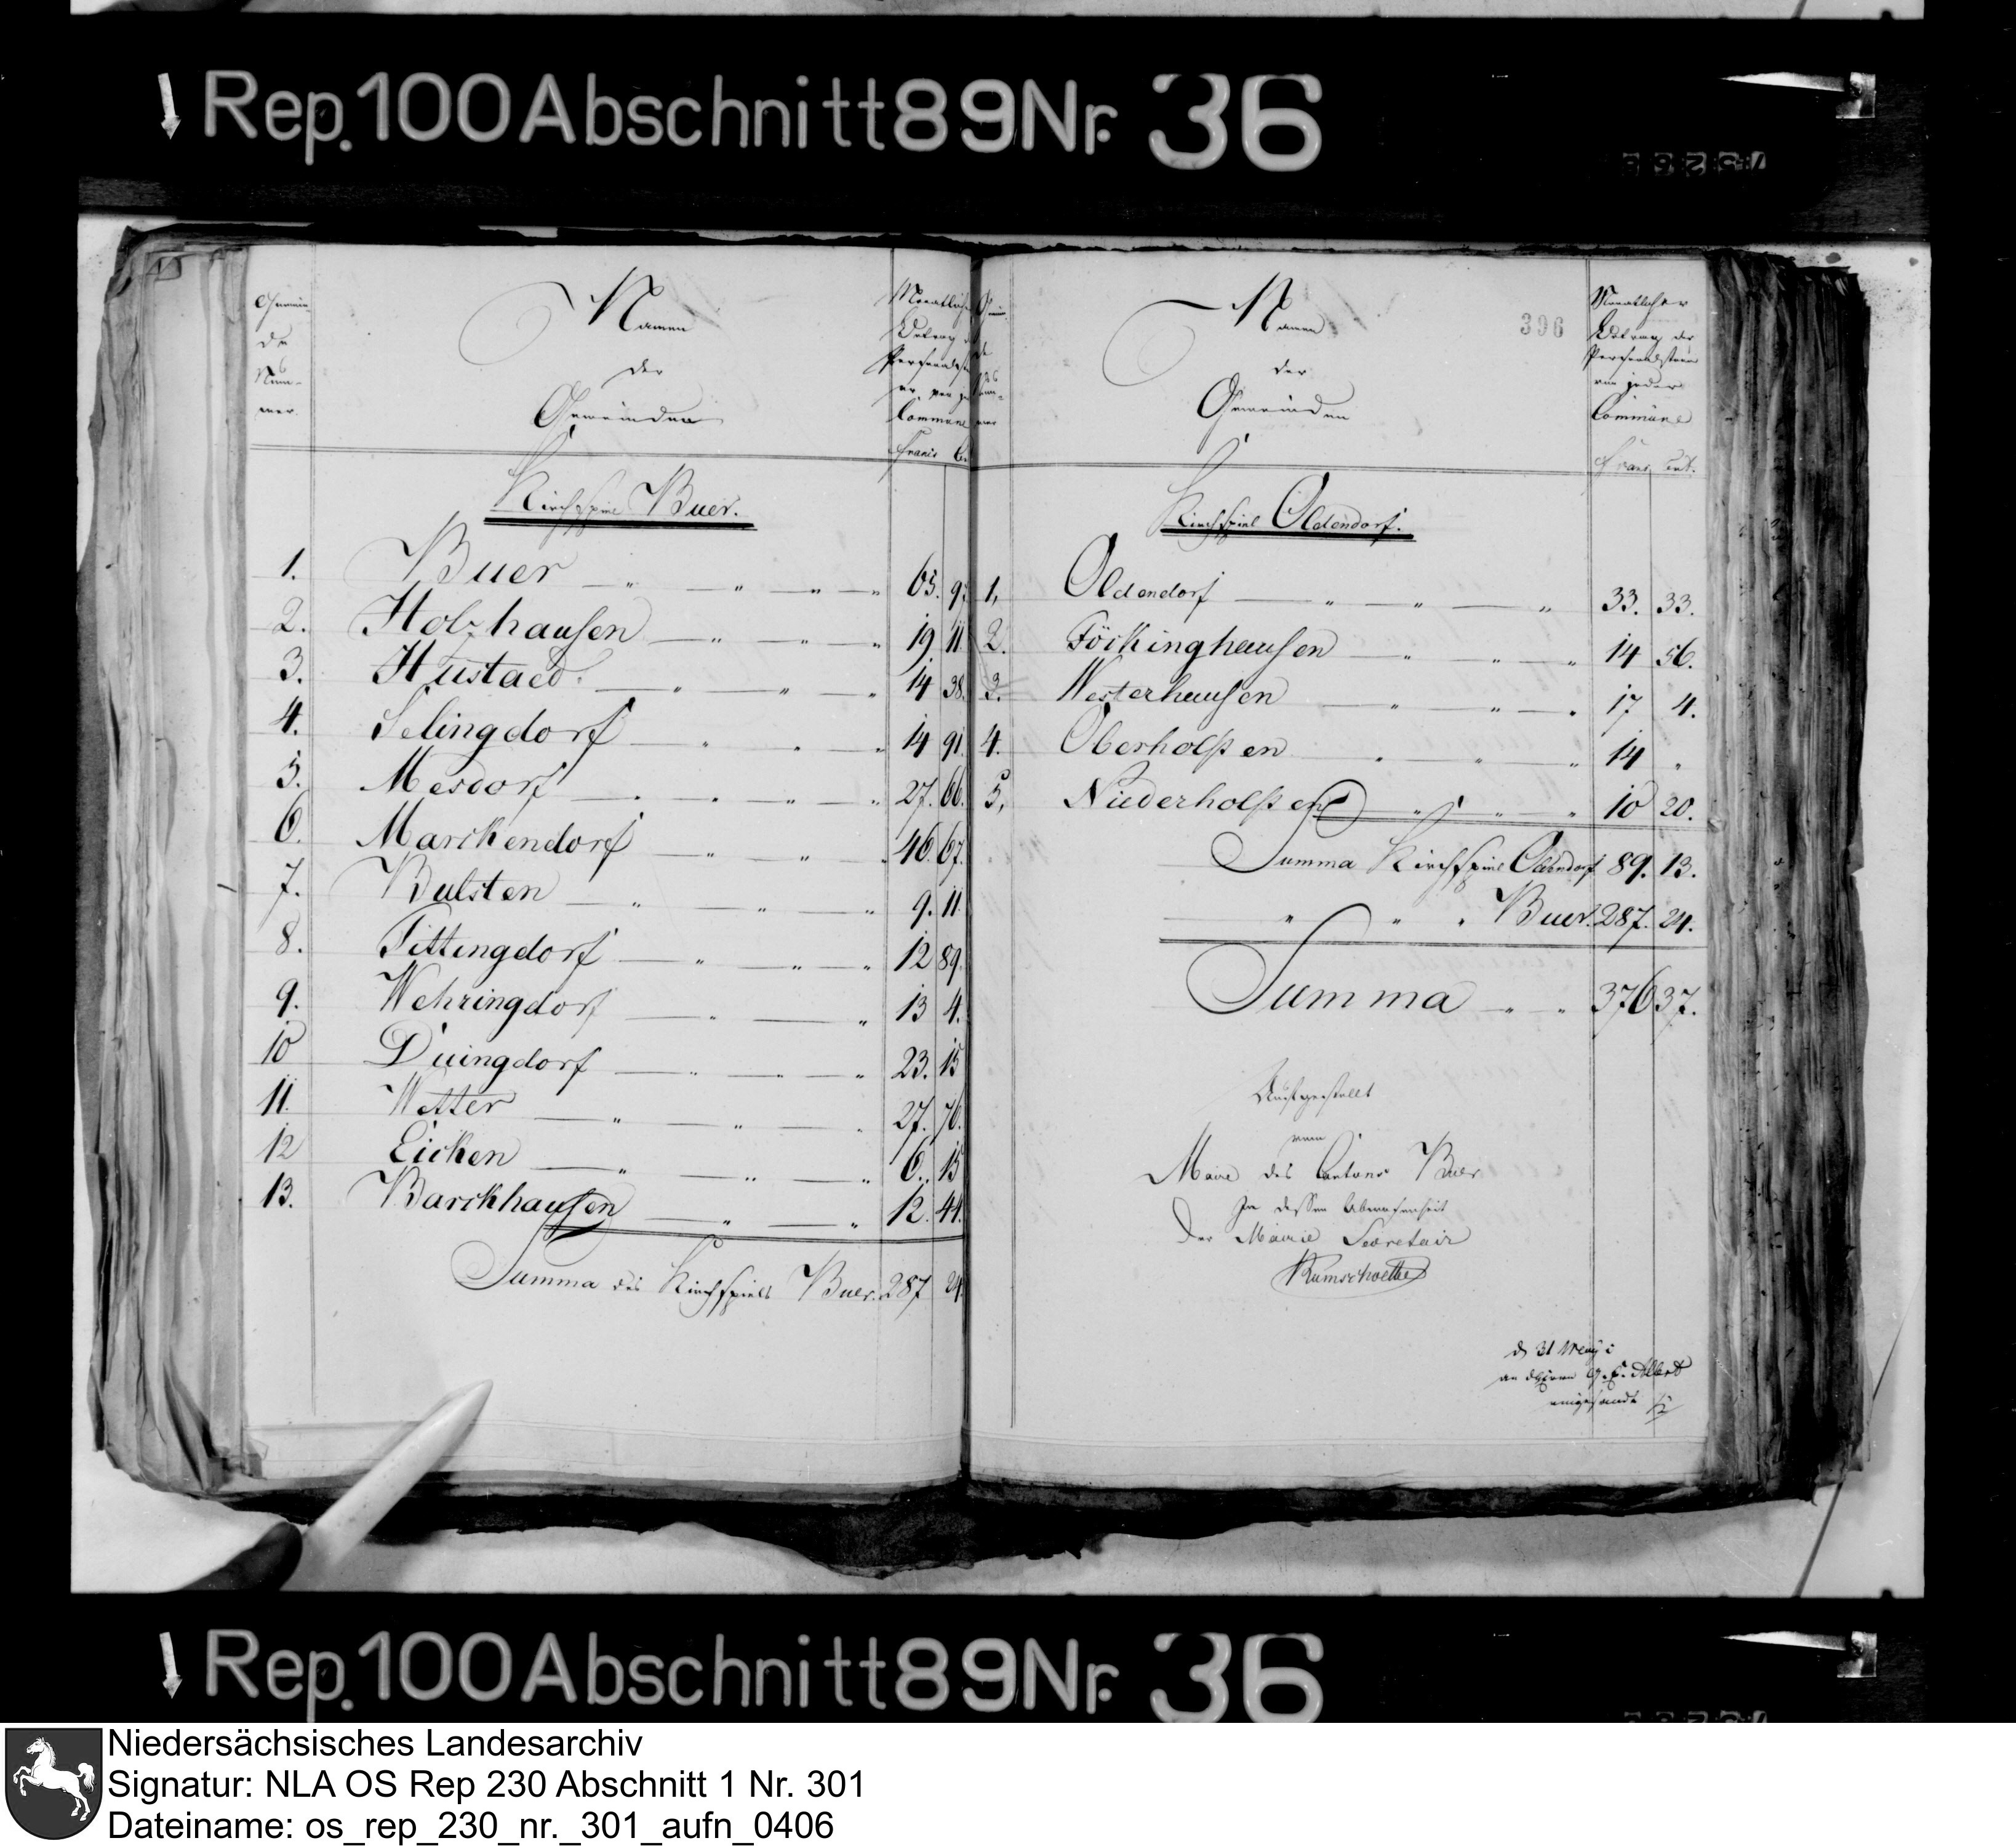 Rep. 100 Abschnitt 89 Nr. 36
Gemein-
de
Num-
mer.
Namen
der
Gemeinden
Monatlicher
Betrag der
Personalsteu-
er von je
Commune
Francs
Kirchspiel Buer.
1. Buer 65. 9
2. Holzhausen 19 11.
3. Hustaed. 14 38.
4. Selingdorf 14 91.
5. Mesdorf 27. 66.
6. Marckendorf 46. 67.
7. Bulsten 9. 11
8. Tittingdorf 12 89.
9. Wehringdorf 13 4.
10 Duingdorf 23. 15
11. Wetter 27. 76.
12 Eicken 6. 15
13. Barckhausen 12. 41.
Summa des Kirchspiels Buer. 287 24.
396
Namen
der
Gemeinden
Monatlicher
Betrag der
Personalsteuer
von jeder
Commüne
Francs Cent.
Kirchspiel Oldendorf.
1, Oldendorf 33. 33.
2. Föckinghausen 14 56.
3. Westerhausen 17 4.
4. Oberholßen 14 "
5, Niederholßen 10 20.
Summa Kirchspiel Oldendorf 89. 13.
" " " Buer. 287. 24.
Summa 376 37.
Ausgestellt
vom
Maire des Cantons Buer
In dessen Abwesenheit
Der Mairie Secretair
d 31
an G. E. Albert
eingesandt
Rep. 100 Abschnitt 89 Nr. 36
Niedersächsisches Landesarchiv
Signatur: NLA OS Rep 230 Abschnitt 1 Nr. 301
Dateiname: os_rep_230_nr._301_aufn_0406